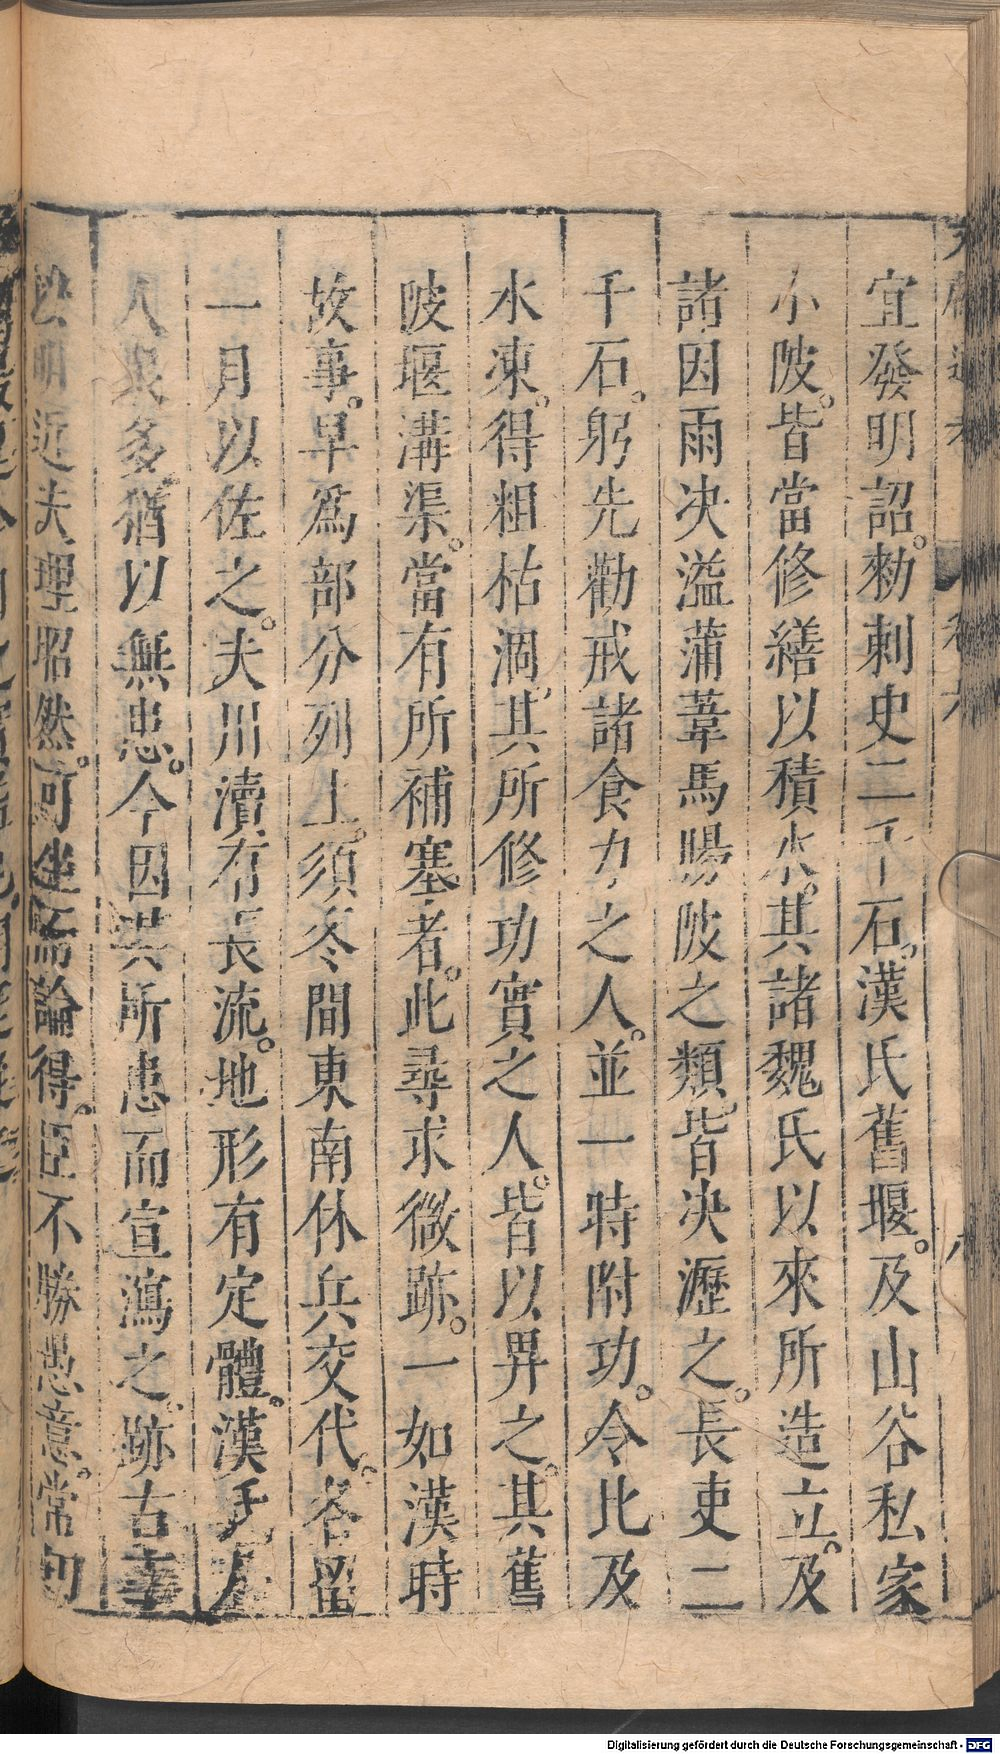 宜發明詔。勑刺史二千石。漢氏舊堰。及山谷私家
小陂。皆當修繕以積水。其諸魏氏以來所造立。及
諸因雨决溢蒲葦馬腸陂之類。皆决瀝之。長吏二
千石。躬先勸戒諸食力之人。並一時附功。令比及
水凍。得粗枯涸。其所修功實之人。皆以畀之。其舊
陂堰溝渠。當有所補塞者。此尋求微跡。一如漢時
故事。早爲部分列上。須冬間東南休兵交代。各留
一月以佐之。夫川瀆有長流。地形有定體。漢氏
人衆多。猶以無患。今因其所患而宣瀉之。跡古事
明近。大理昭然。可坐而論得。臣不勝愚意。常
卷六
八
Digitalisierung gefördert durch die Deutsche Forschungsgemeinschaft - DFG